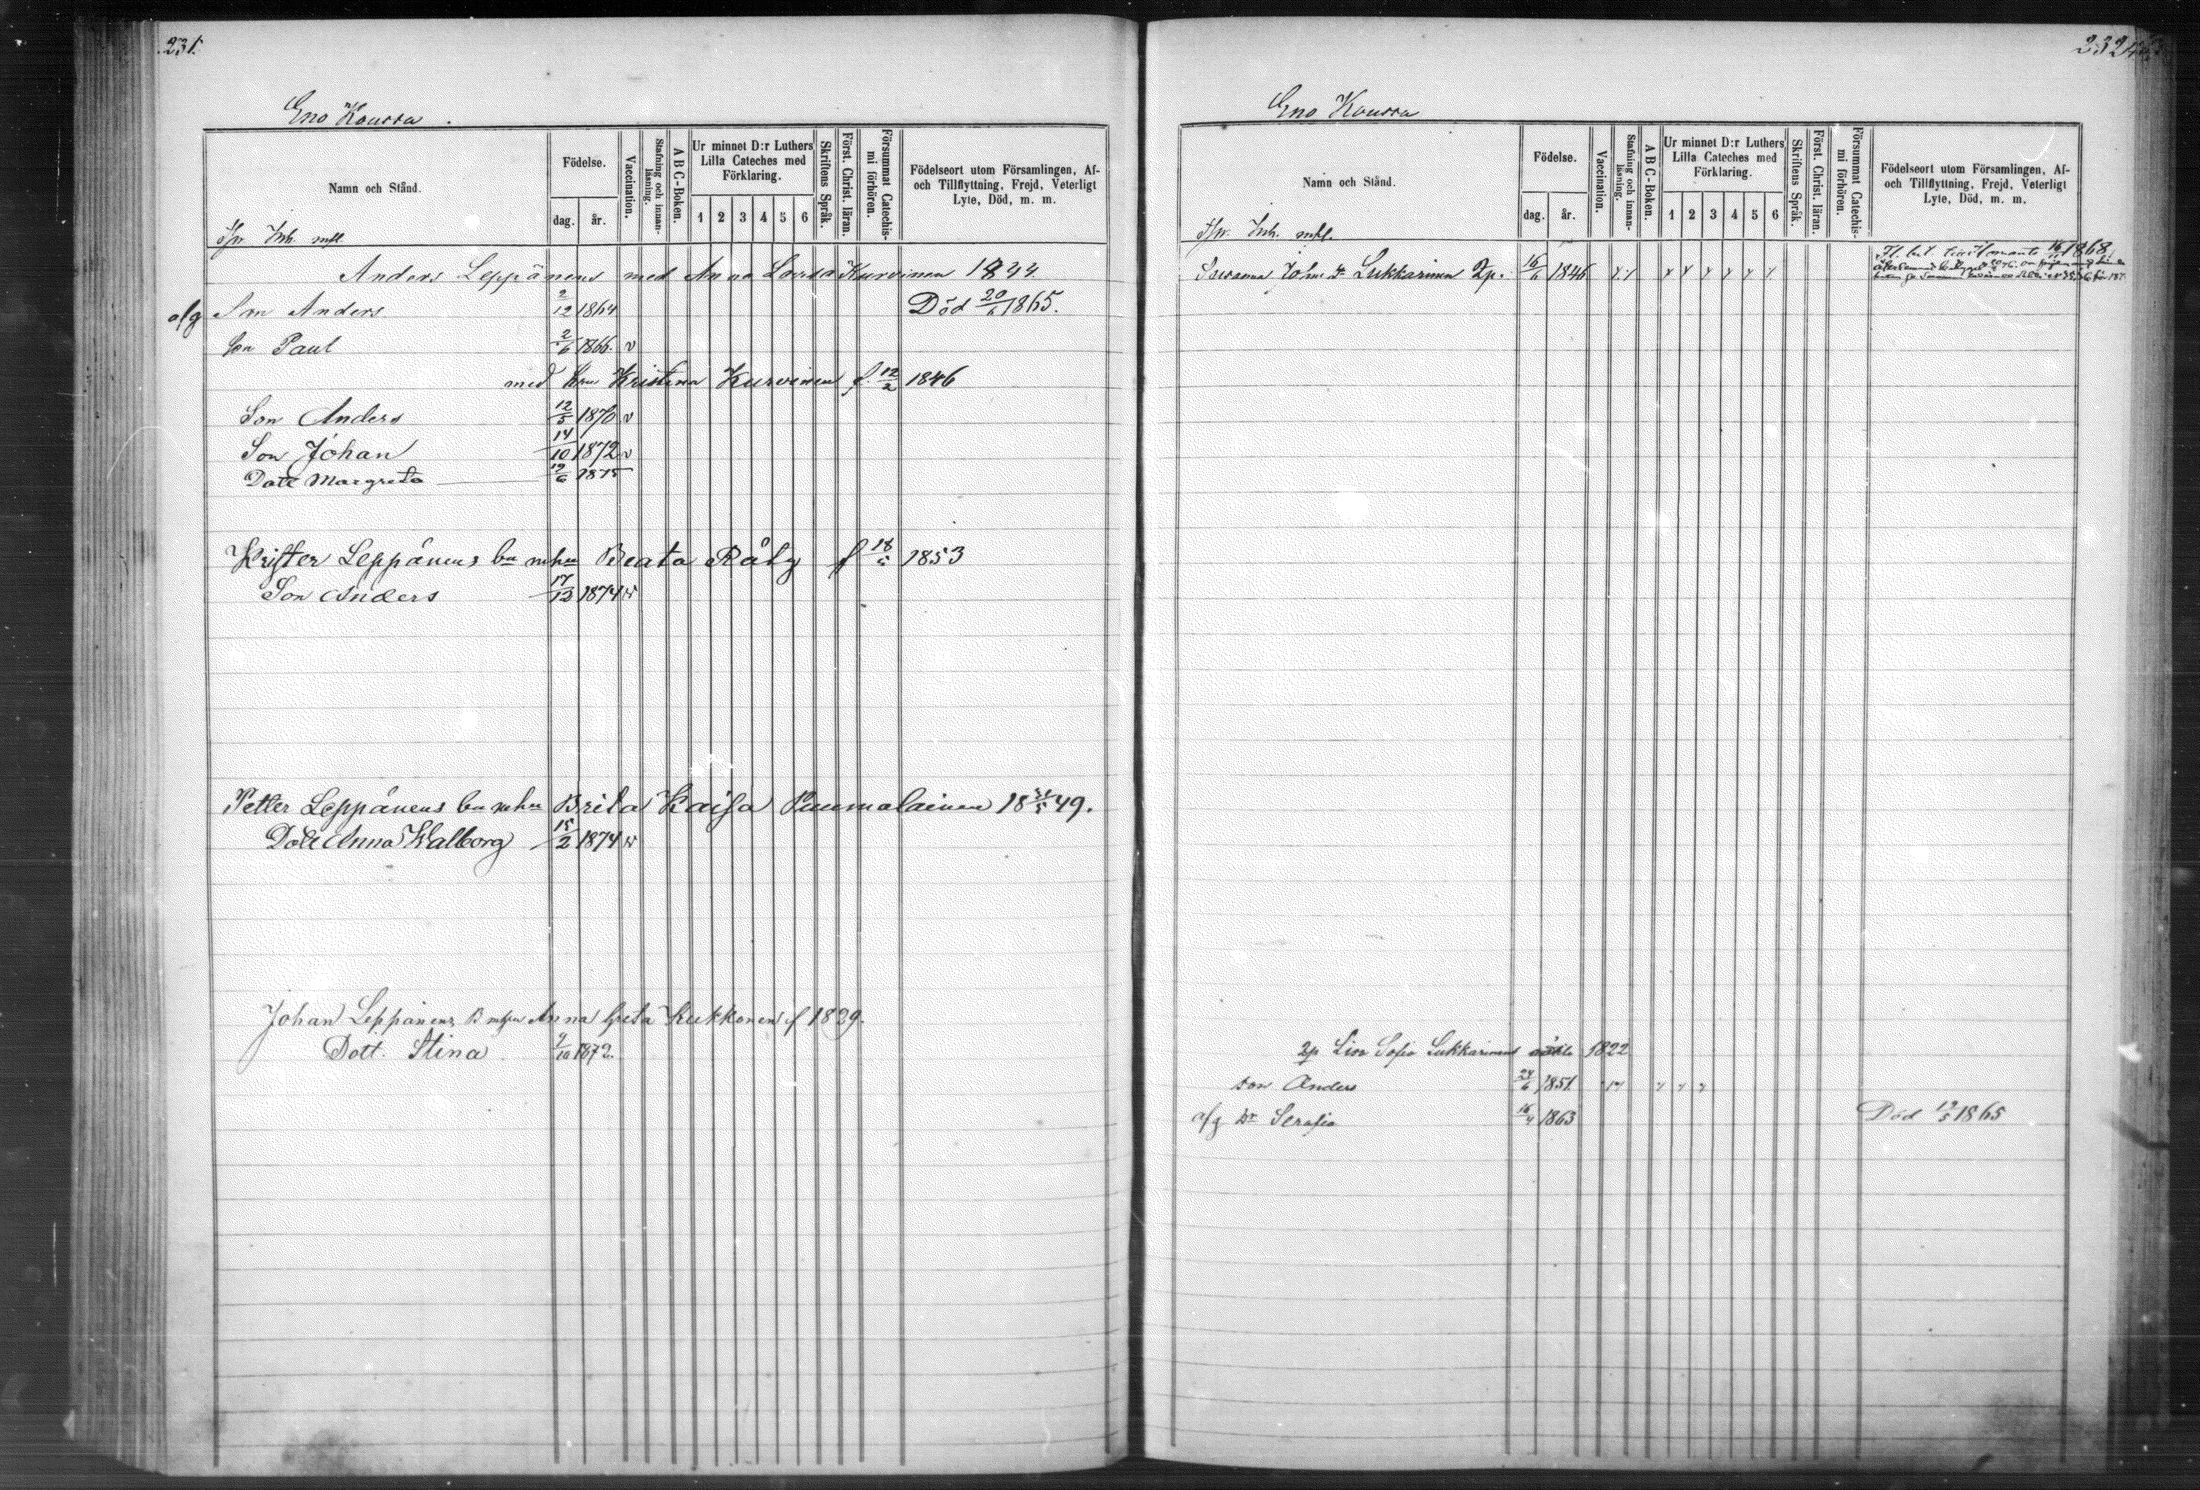 231.
Eno Kousra.
Namn och Stånd.
Födelse.
dag.
år.
Vaccination.
Stafning och innan-läsning.
A B C-Boken.
Ur minnet D:r Luthers Lilla Cateches med Förklaring.
1 2 3 4 5 6
Skriftens Språk.
Först. Christ. läran.
Försummat Catechis-mi förhören.
Födelseort utom Församlingen, Af- och Tillflyttning, Frejd, Veterligt Lyte, Död, m. m.
Inh.
Anders Leppänens med Anna Lovisa Kurvinen 1844
afg Son Anders 2/12 1864 Död 20/6 1865.
Son Paul 2/6 1866. v
med Kristina Kurvinen f. 12/2 1846
Son Anders 12/5 1870 v
Son Johan 14/10 1872 v
Dott Margreta 19/6 1875
Krister Leppänens Beata Räty f 18/5 1853
Son Anders 17/12 1874
Petter Leppänens Brita Kaisa Puumalainen 18 49.
Dott Anna Walborg 15/2 1874
Johan Leppänens Anna Greta Kukkonen f 1829.
Dott. Stina 9/10 1872.
232
Eno Kousra
Namn och Stånd.
Födelse.
dag.
år.
Vaccination.
Stafning och innan-läsning.
A B C-Boken.
Ur minnet D:r Luthers Lilla Cateches med Förklaring.
1 2 3 4 5 6
Skriftens Språk.
Först. Christ. läran.
Försummat Catechis-mi förhören.
Födelseort utom Församlingen, Af- och Tillflyttning, Frejd, Veterligt Lyte, Död, m. m.
Inh.
Susanna Johns dr Lukkarinen 2p. 16/6 1846 1868
2p Lisa Sofia Lukkarinens 1822
son Anders 24/6 1851.
afg Dr Serafia 16/4 1863 Död 19/5 1865